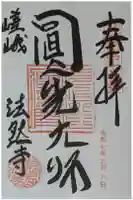 奉拝
圓光大師
嵯峨
法然寺